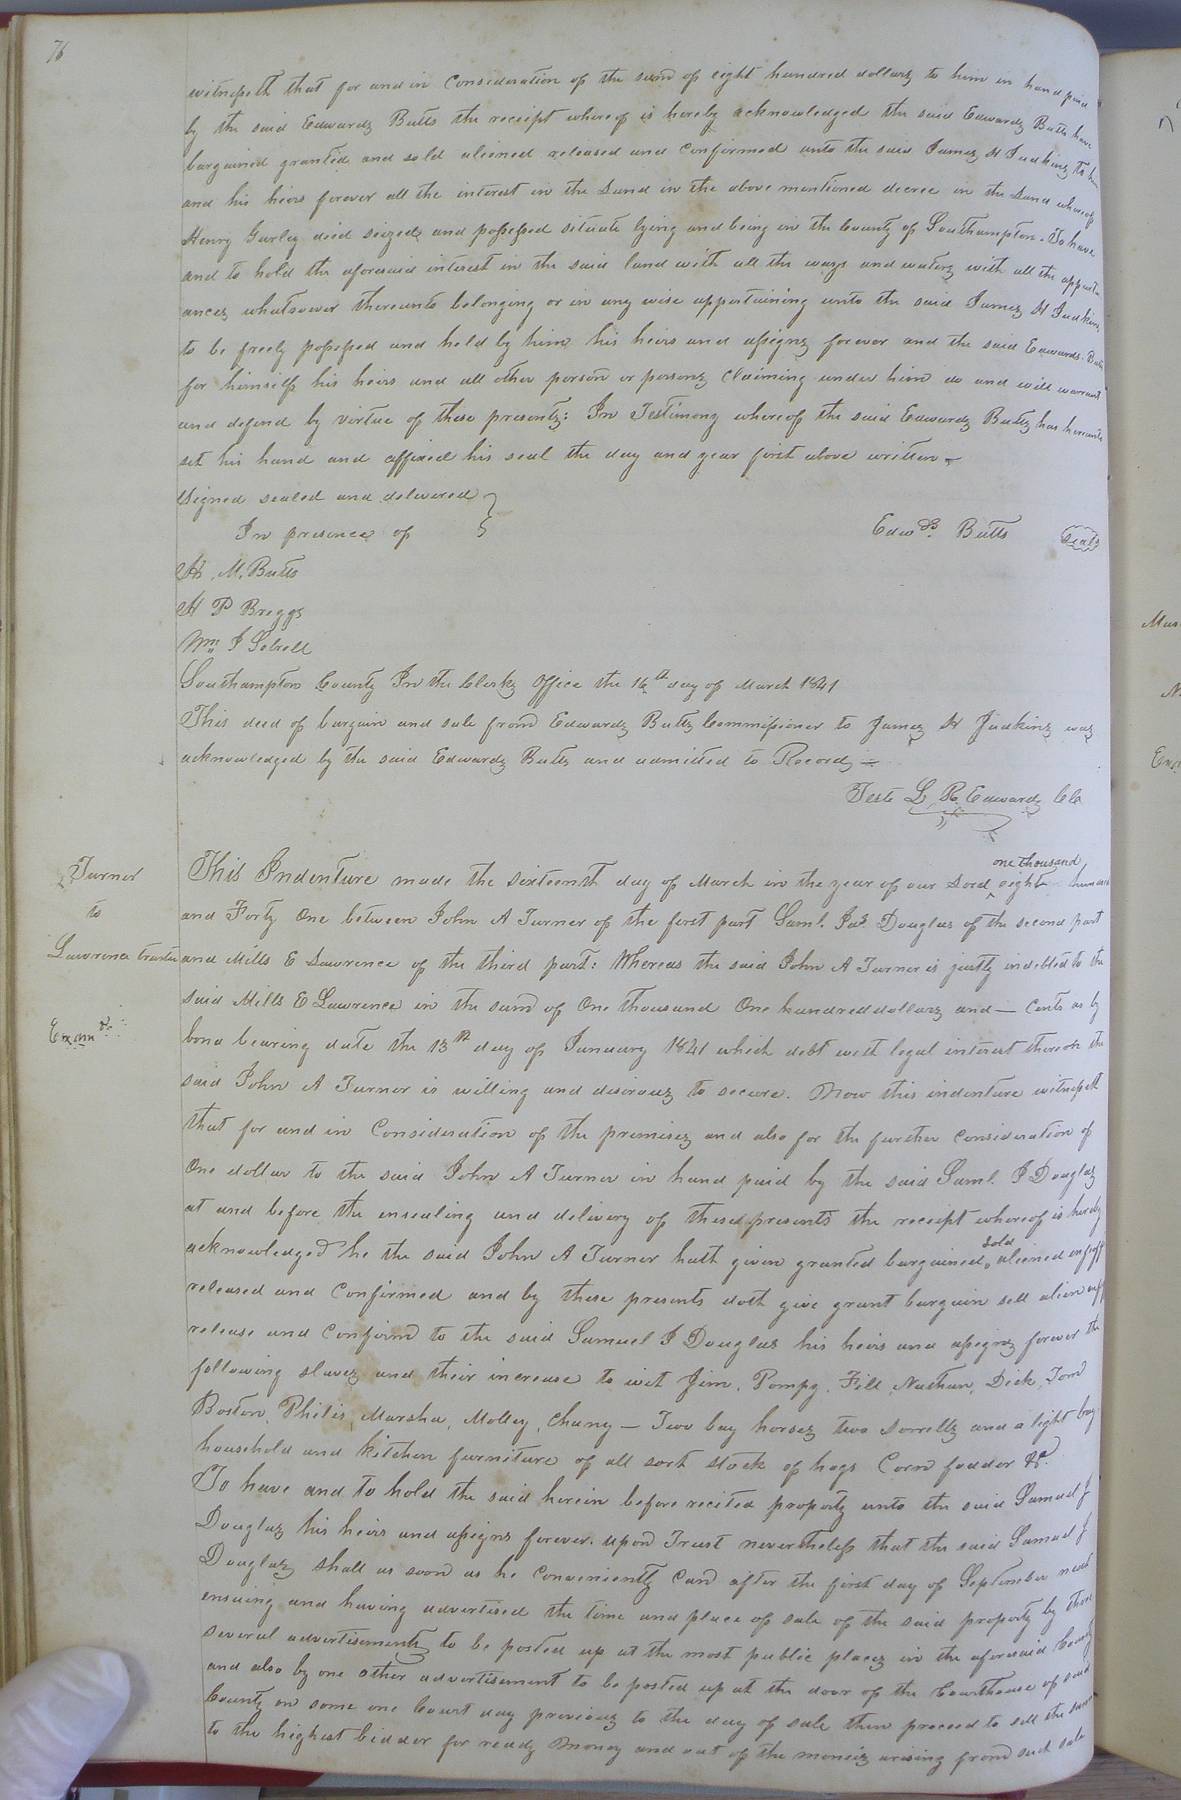 76
witnesseth that for and in Consideration of the sum of eight hundred dollars to him in hand paid
by the said Edwards Butts the receipt whereof is hereby acknowledged the said Edwards Butts have
bargained granted and sold aliened released and Confirmed unto the said James H Judkins to him
and his heirs forever all the interest in the Land in the above mentioned decree in the Land whereof
Henry Gurley died seized and possessed situate lying and being in the County of Southampton. To have
and to hold the aforesaid interest in the said land with all the ways and waters with all the appurten
ances whatsoever thereunto belonging or in any wise appertaining unto the said James H Judkins
to be freely possessed and held by him his heirs and assigns forever and the said Edwards Butts
for himself his heirs and all other person or persons Claiming under him do and will warrant
and defend by virtue of these presents: In Testimony whereof the said Edwards Butts has hereunto
set his hand and affixed his seal the day and year first above written
Signed sealed and delivered
In presence of
Edwds. Butts Seal
H. M. Butts
H P Briggs
Wm J Sebrell
Southampton County In the Clerks Office the 16th day of March 1841
This deed of bargain and sale from Edwards Butts Commissioner to James H Judkins was
acknowledged by the said Edwards Butts and admitted to Record
Teste L. R. Edwards Clk
Turner
to
Lawrence trustee
Examd.
one thousand
This Indenture made the sixteenth day of March in the year of our Lord eight hundred
and Forty One between John A Turner of the first part Saml. Jas. Douglas of the second part
and Mills E Lawrence of the third part: Whereas the said John A Turner is justly indebted to the
said Mills E Lawrence in the sum of One thousand One hundred dollars and — Cents as by
bond bearing date the 13th day of January 1841 which debt with legal interest thereon the
said John A Turner is willing and desirous to secure. Now this indenture witnesseth
that for and in Consideration of the premises and also for the further Consideration of
One dollar to the said John A Turner in hand paid by the said Saml. J Douglas
at and before the ensealing and delivery of these presents the receipt whereof is hereby
acknowledged he the said John A Turner hath given granted bargained sold aliened enfeoff
released and Confirmed and by these presents doth give grant bargain sell alien enff
release and Confirm to the said Samuel J Douglas his heirs and assigns forever the
following slaves and their increase to wit Jim, Pompy, Fill, Nathan, Dick, Tom
Boston, Philis, Marsha, Molley, Chany — Two bay horses two sorrells and a light bay
household and kitchen furniture of all sort stock of hogs Corn fodder &c.
To have and to hold the said herein before recited property unto the said Samuel J
Douglas his heirs and assigns forever. upon Trust nevertheless that the said Samuel J
Douglas shall as soon as he Conveniently Can after the first day of September next
ensuing and having advertised the time and place of sale of the said property by three
several advertisements to be posted up at the most public places in the aforesaid County
and also by one other advertisement to be posted up at the door of the Courthouse of said
County on some one Court day previous to the day of sale then proceed to sell the same
to the highest bidder for ready money and out of the monies arising from such sale